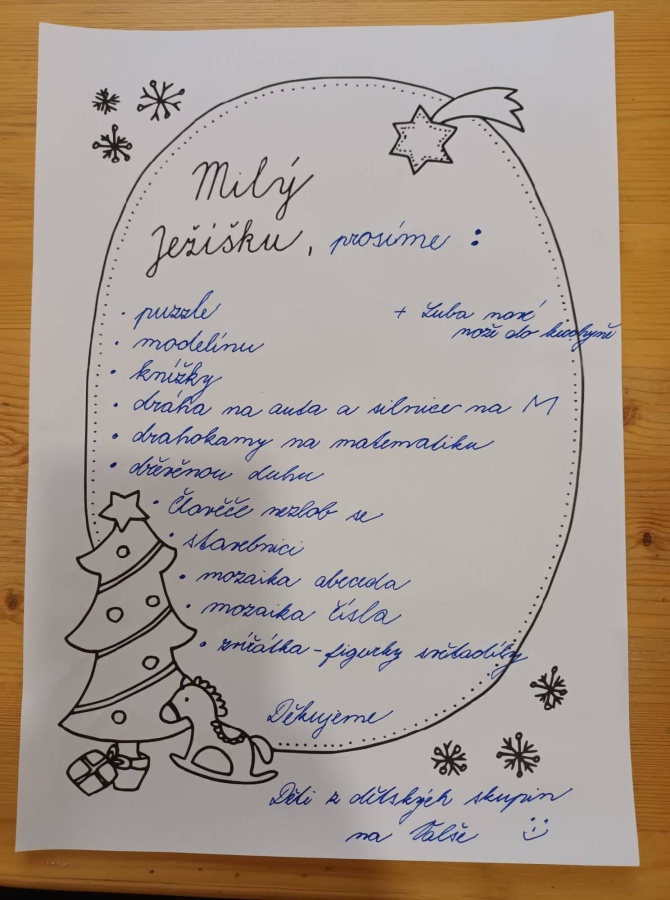 Milý
Ježíšku, prosíme :
· puzzle
+ Luba nové
nože do kuchyně
· modelínu
· knížky
· dráha na auta a silnice na M
· drahokamy na matematiku
· dřevěnou duhu
· Člověče nezlob se
· stavebnici
· mozaika abeceda
· mozaika čísla
· zvířátka - figurky světadíly
Děkujeme
Děti z dětských skupin
na Valše :)